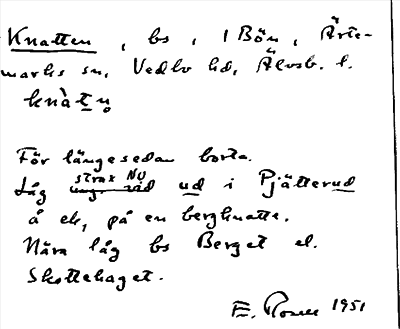 Knatten, bs, i Bön, Ärte-
marks sn, Vedbo hd, Älvsb. l.
knàtṇ
För längesedan borta.
strax NV
Låg ung. vid ud i Pjätterud
å ek, på en bergknatte.
Nära låg bs Berget el.
Skottehaget.
1951